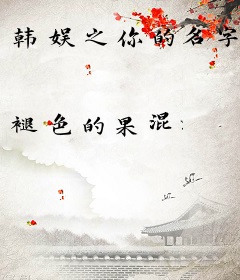 韩娱之你的名字
褪色的果混